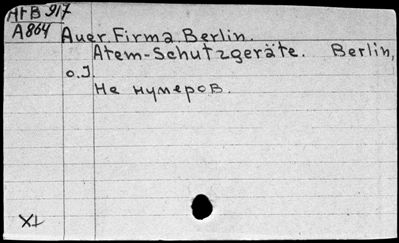 AtB 917
A864
Auer. Firma. Berlin.
Atem-Schutzgeräte. Berlin,
o.J
Не нумеров.
XI